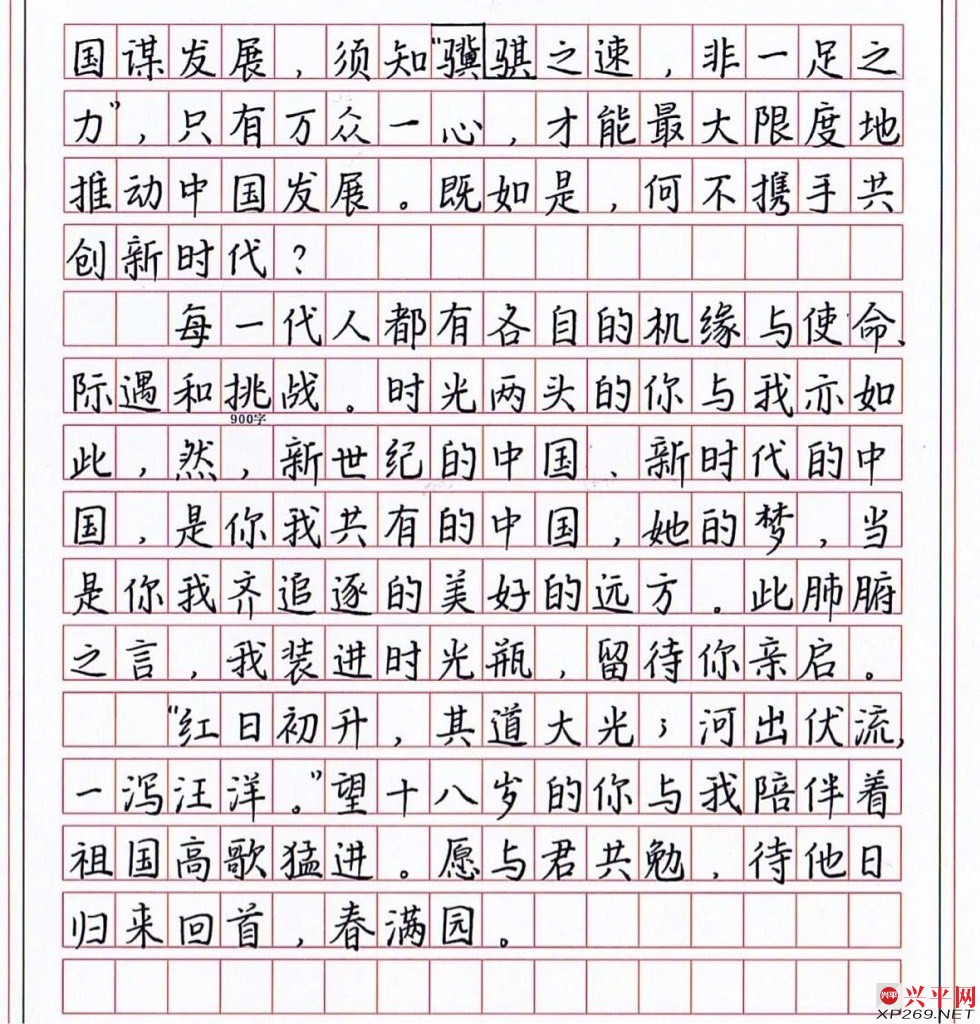 国谋发展，须知“骥骐之速，非一足之
力”，只有万众一心，才能最大限度地
推动中国发展。既如是，何不携手共
创新时代？
每一代人都有各自的机缘与使命、
际遇和挑战。时光两头的你与我亦如
900字
此，然，新世纪的中国、新时代的中
国，是你我共有的中国，她的梦，当
是你我齐追逐的美好的远方。此肺腑
之言，我装进时光瓶，留待你亲启。
“红日初升，其道大光；河出伏流，
一泻汪洋。”望十八岁的你与我陪伴着
祖国高歌猛进。愿与君共勉，待他日
归来回首，春满园。
兴平 兴平网
XP269.NET